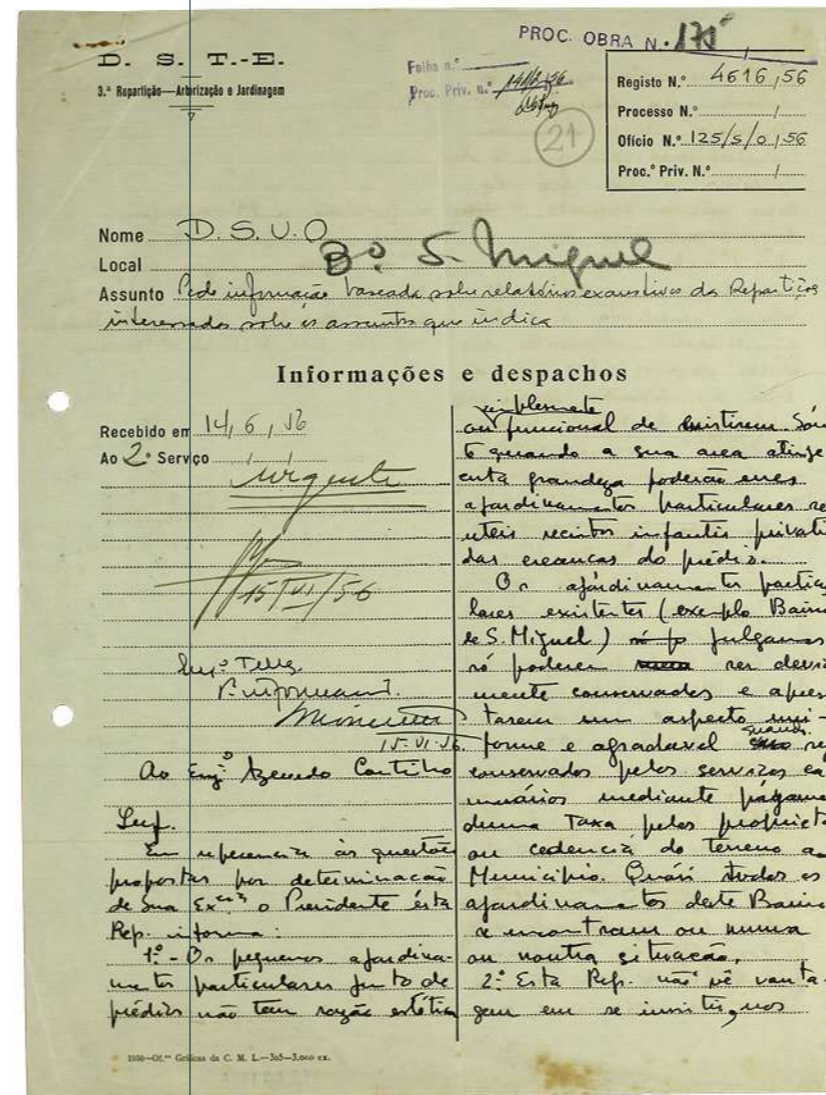 PROC. OBRA N.º 175
D. S. T.-E.
3.ª Repartição—Arborização e Jardinagem
Folha n.º
Proc. Priv. n.º
21
Registo N.º 4616/56
Processo N.º /
Ofício N.º 125/S/O/56
Proc.º Priv. N.º /
Nome D.S.U.O
Local Bº. S. Miguel
Assunto Pede informação baseada sobre relatórios exaustivos das Repartições
interessadas sobre os assuntos que indica
Informações e despachos
Recebido em 14/6/56
Ao 2º Serviço / /
Urgente
15/VI/56
Engº Telles
P. informar
15-VI-56
Ao Engº Azevedo Coutinho
Em referencia às questões
propostas por determinação
de Sua Exª o Presidente ésta
Rep. informa:
1º - Os pequenos ajardina-
mentos particulares junto de
prédios não tem razão estética
simplesmente
ou funcional de existirem. Sòm
te quando a sua area atinge
certa grandeza poderão esses
ajardinamentos particulares se
uteis recintos infantis privati
das creanças do prédio.
Os ajardinamentos particu
lares existentes (exemplo Bairro
de S. Miguel) julgamos
só poderem ser devida
mente conservados e apres
tarem um aspecto uni-
forme e agradavel quando se
conservados pelos serviços ca
marários mediante págame
duma taxa pelos propriet
ou cedencia do terreno ao
Municipio. Quási todos os
ajardinamentos deste Bairro
se encontram ou numa
ou noutra situação.
2º Esta Rep. não vê vanta-
gem em se insistir, nos
1950—Of.ªˢ Gráficas da C. M. L.—305—3.000 ex.